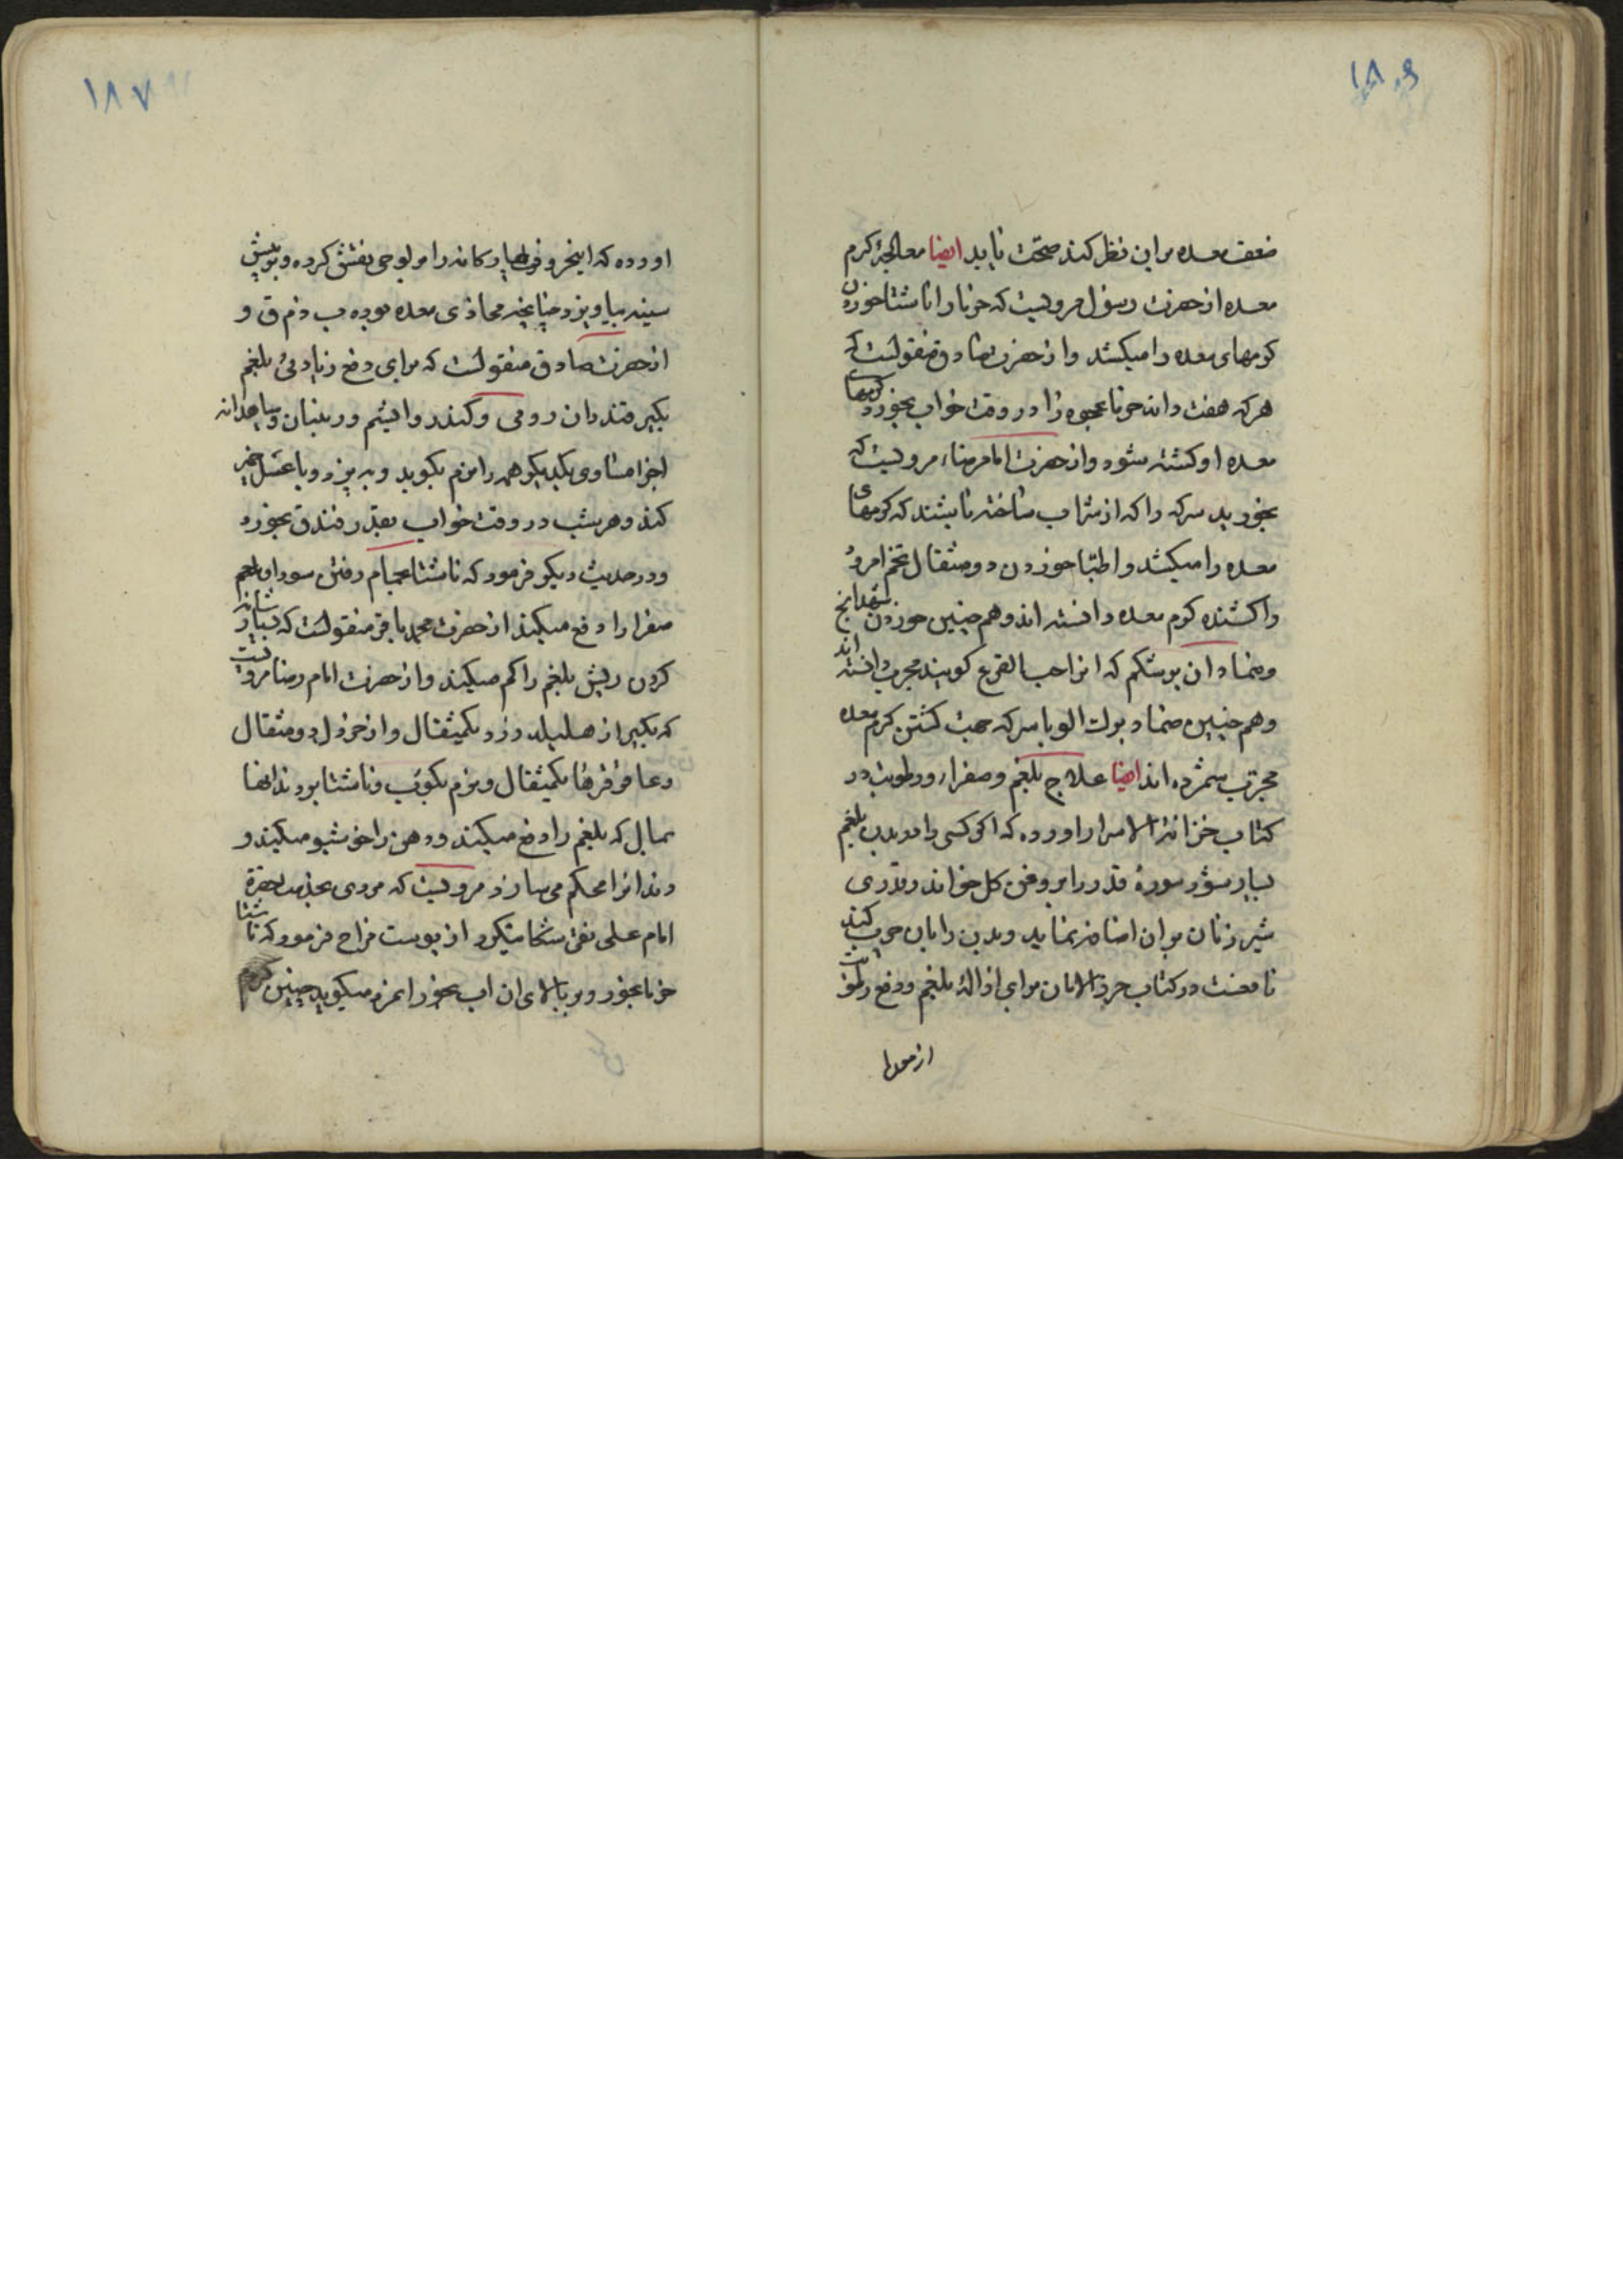 ۱۸۶
ضعف معده براین نظر کند صحت یابد ایضا معالجهٔ کرم
معده از حضرت رسول مرویست که خرما را ناشتا خوردن
کرمهای معده را میکشد و از حضرت صادق منقولست که
هر که هفت دانه خرما عجوه را در وقت خواب بخورد کرمها
معده او کشته شود و از حضرت امام رضا مرویست که
بخورید سرکه را که از شراب ساخته باشند که کرمهای
معده را میکشد و اطبا خوردن دو مثقال تخم
را کشنده کرم معده دانسته اند و هم چنین خوردن
وضماد ان بر شکم که انرا حب القرع کویند مجرب دانسته اند
وهم چنین ضماد برک الو با سرکه جهت کشتن کرم معده
مجرب شمرده اند ایضا علاج بلغم و صفرا و رطوبت در
کتاب خزانة الاسرار اورده که اکر کسی را در بدن بلغم
بسیار شود سورهٔ قدر را بر روغن کل خواند و قدری
شیر زنان بر ان اضافه نماید و بدن را بان چرب کند
نافعست در کتاب حرز الامان برای ازالهٔ بلغم و دفع رطوبت
۱۸۷
اورده که این حروف چهارکانه را بر لوحی نقش کرده و بر پیش
سینه بیاویزد چنانچه محاذی معده بوده ب ذ م ق و
از حضرت صادق منقولست که برای دفع زیادتی بلغم
بکیر قندران رومی و کندر و اویشم و رنیان و سیاهدانه
اجزا مساوی یکدیکر همه را نرم بکوبد و به پزد و با عسل خمیر
کند و هر شب در وقت خواب بقدر فندق بخورد
و در حدیث دیکر فرمود که ناشتا بحمام رفتن سودا و بلغم
صفرا را دفع میکند از حضرت محمد باقر منقولست که بسیار شانه
کردن ریش بلغم را کم میکند و از حضرت امام رضا مرویست
که بکیر از هلیله زرد یکمثقال و از خردل دو مثقال
و عاقرقرها یکمثقال و نرم بکوب و ناشتا بر دندانها
بمال که بلغم را دفع میکند و دهن را خوشبو میکند و
دندانرا محکم می سازد مرویست که مردی بخدمت حضرة
امام علی نقی شکایت کرد از یوست مزاج فرمود که ناشتا
خرما بخور و بر بالای ان اب بخور میکوید چنین